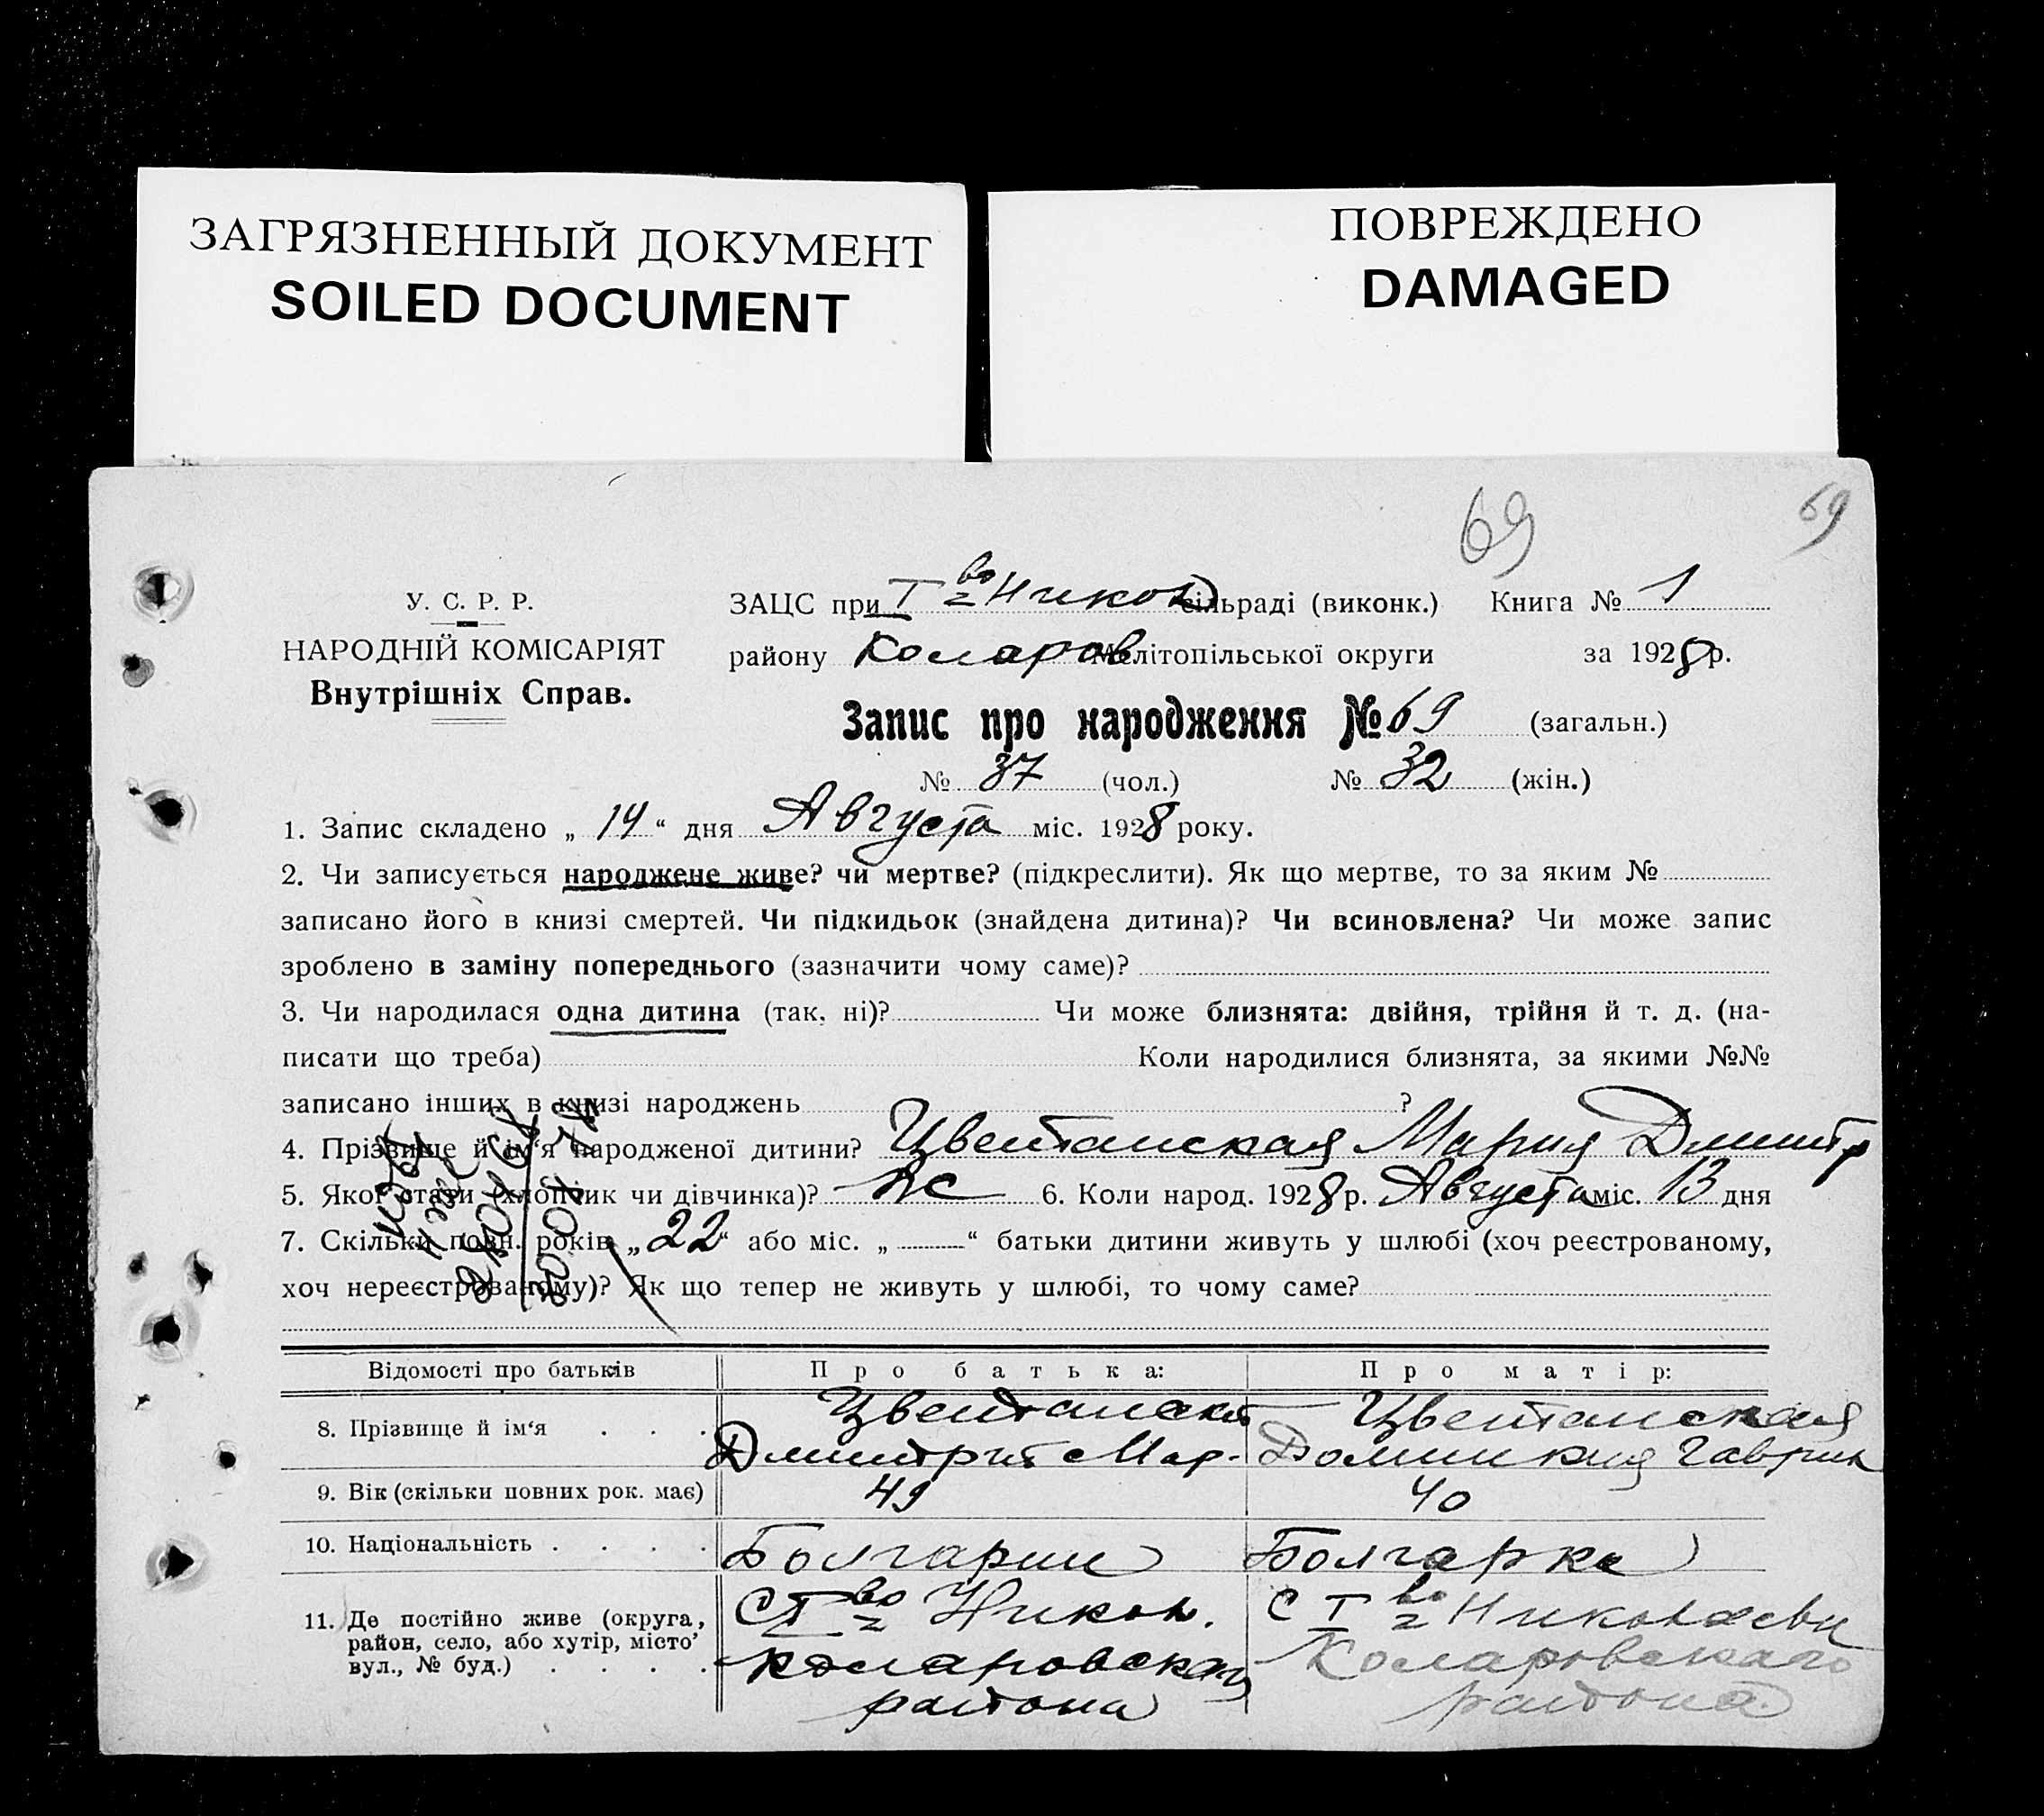 ЗАГРЯЗНЕННЫЙ ДОКУМЕНТ
SOILED DOCUMENT
ПОВРЕЖДЕНО
DAMAGED
69
69
У. С. Р. Р.
НАРОДНІЙ КОМІСАРІЯТ
Внутрішніх Справ.
ЗАЦС при I во Никол сільраді (виконк.) Книга № 1
району Коларов Мелітопільської округи за 1928 р.
Запис про народження № 69 (загальн.)
№ 37 (чол.) № 32 (жін.)
1. Запис складено „ 14 “ дня Августа міс. 1928 року.
2. Чи записується народжене живе? чи мертве? (підкреслити). Як що мертве, то за яким №
записано його в книзі смертей. Чи підкидьок (знайдена дитина)? Чи всиновлена? Чи може запис
зроблено в заміну попереднього (зазначити чому саме)?
3. Чи народилася одна дитина (так, ні)? Чи може близнята: двійня, трійня й т. д. (на-
писати що треба) Коли народилися близнята, за якими №№
записано інших в книзі народжень ?
4. Прізвище й ім‘я народженої дитини? Цветанская Мария Дмитр
5. Якої стати (хлопчик чи дівчинка)? ж 6. Коли народ. 1928 р. Августа міс. 13 дня
7. Скільки повн. років „ 22 “ або міс. „ “ батьки дитини живуть у шлюбі (хоч реєстрованому,
хоч нереєстрованому)? Як що тепер не живуть у шлюбі, то чому саме?
Відомості про батьків Про батька: Про матір:
8. Прізвище й ім‘я . . . Цветанский Цветанская
Дмитрий Мар. Домникия Гаврил
9. Вік (скільки повних рок. має) 49 40
10. Національність . . . . Болгарин Болгарка
11. Де постійно живе (округа, С I во Никол. С I во Николаевки
район, село, або хутір, місто’ Коларовская Коларовскаго
вул., № буд.) . . . . района района